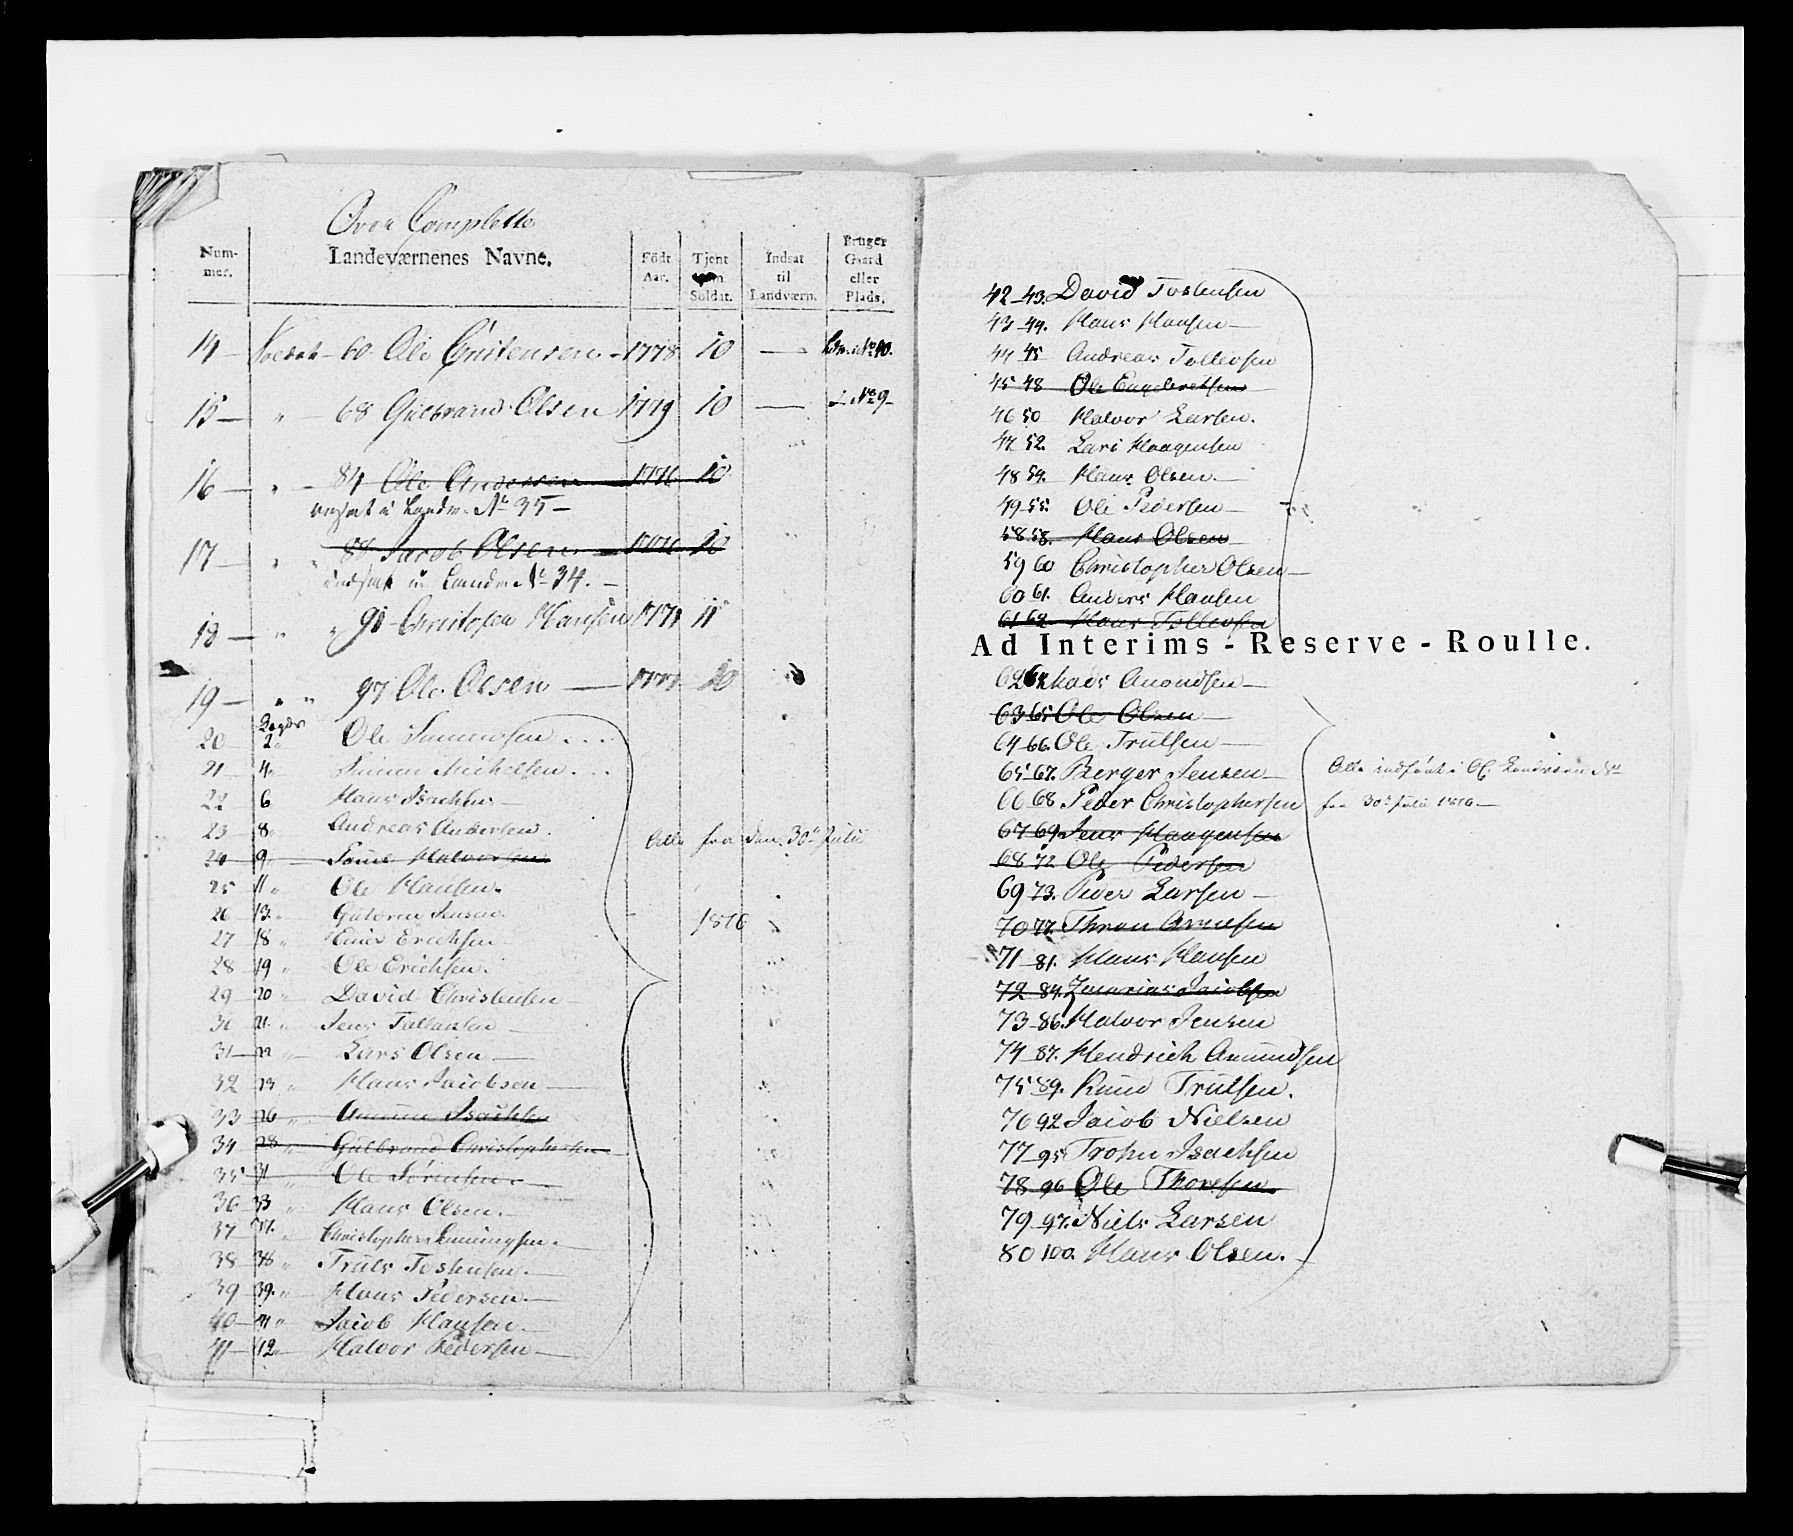 Over Complette
Nummer. Landeværnenes Navne. Födt Aar. Tjent som Soldat. Indsat til Landværn. Bruger Gaard eller Plads.
14 — 60 Ole Cristensen - 1778 10 — No 10.
15 — " — 68 Gulbrand Olsen 1779 10 — No 9 —
16 — " — 84 Ole Andersen 1776 10
Landv. No 35 —
17 — " " 88 Jacob Olsen 1776 10
indsat i Landv. No 34. —
18 — " " 91 Christopher Hansen 1771 11
19 — " " 97 Ole Olsen — 1777 10
20 2 Ole
21 4 Simen Michelsen
22 6 Hans Isachsen —
23 8 Andreas Andersen.
24 9 Halvorsen
25 11 " Ole Hansen.
26 13 " Jensen
27 18 " Knud Erichsen —
28 19 " Ole Erichsen.
29 20 " David Christensen —
30 21 " Jens Tollefsen —
31 22 " Lars Olsen —
32 23 " Hans Jacobsen —
33 26 " Amund Isachsen
34 28 " Gulbrand Christophersen
35 31 " Ole Sørensen
36 33 " Hans Olsen. —
37 " Christopher
38 38 " Truls Tostensen. —
39 39. " Hans Pedersen. —
40 41 " Jacob Hansen. —
41 42 Halvor Pedersen —
Alle fra den 30te Julii
1816
42 — 43. David Tostensen
43 — 44. Hans Hansen —
44 45 Andreas Tollevsen
45 48 Ole Engebretsen
46 50 Halvor Larsen.
47 52. Lars Haagensen
48 54. Hans Olsen. —
49 — 55. Ole Pedersen —
58 58. Hans Olsen
59 60 Christopher Olsen —
60 61. Anders Hansen
61 62 Hans Tollevsen
Ad Interims - Reserve - Roulle.
62 64 Mads Amondsen —
63 65 Ole Olsen —
64 — 66. Ole Trulsen —
65 — 67. Berger Jensen —
66 68 Peder Christophersen
67 69 Jens Haagensen
68 72 Ole Pedersen
69 73. Peder Larsen —
70 77. Thron Arnesen
71 — 81. Hans Hansen
72 84. Zacarias Jacobsen
73 — 86. Halvor Jensen
74 — 87. Hendrich Amundsen
75 89. Knud Trulsen.
76 92 Jacob Nielsen
77 — 95 Trohn Isachsen
78 96 Ole Thoresen.
79 — 97. Niels Larsen
80 100. Hans Olsen. —
Alle indført i
fra 30te Julii 1816 —